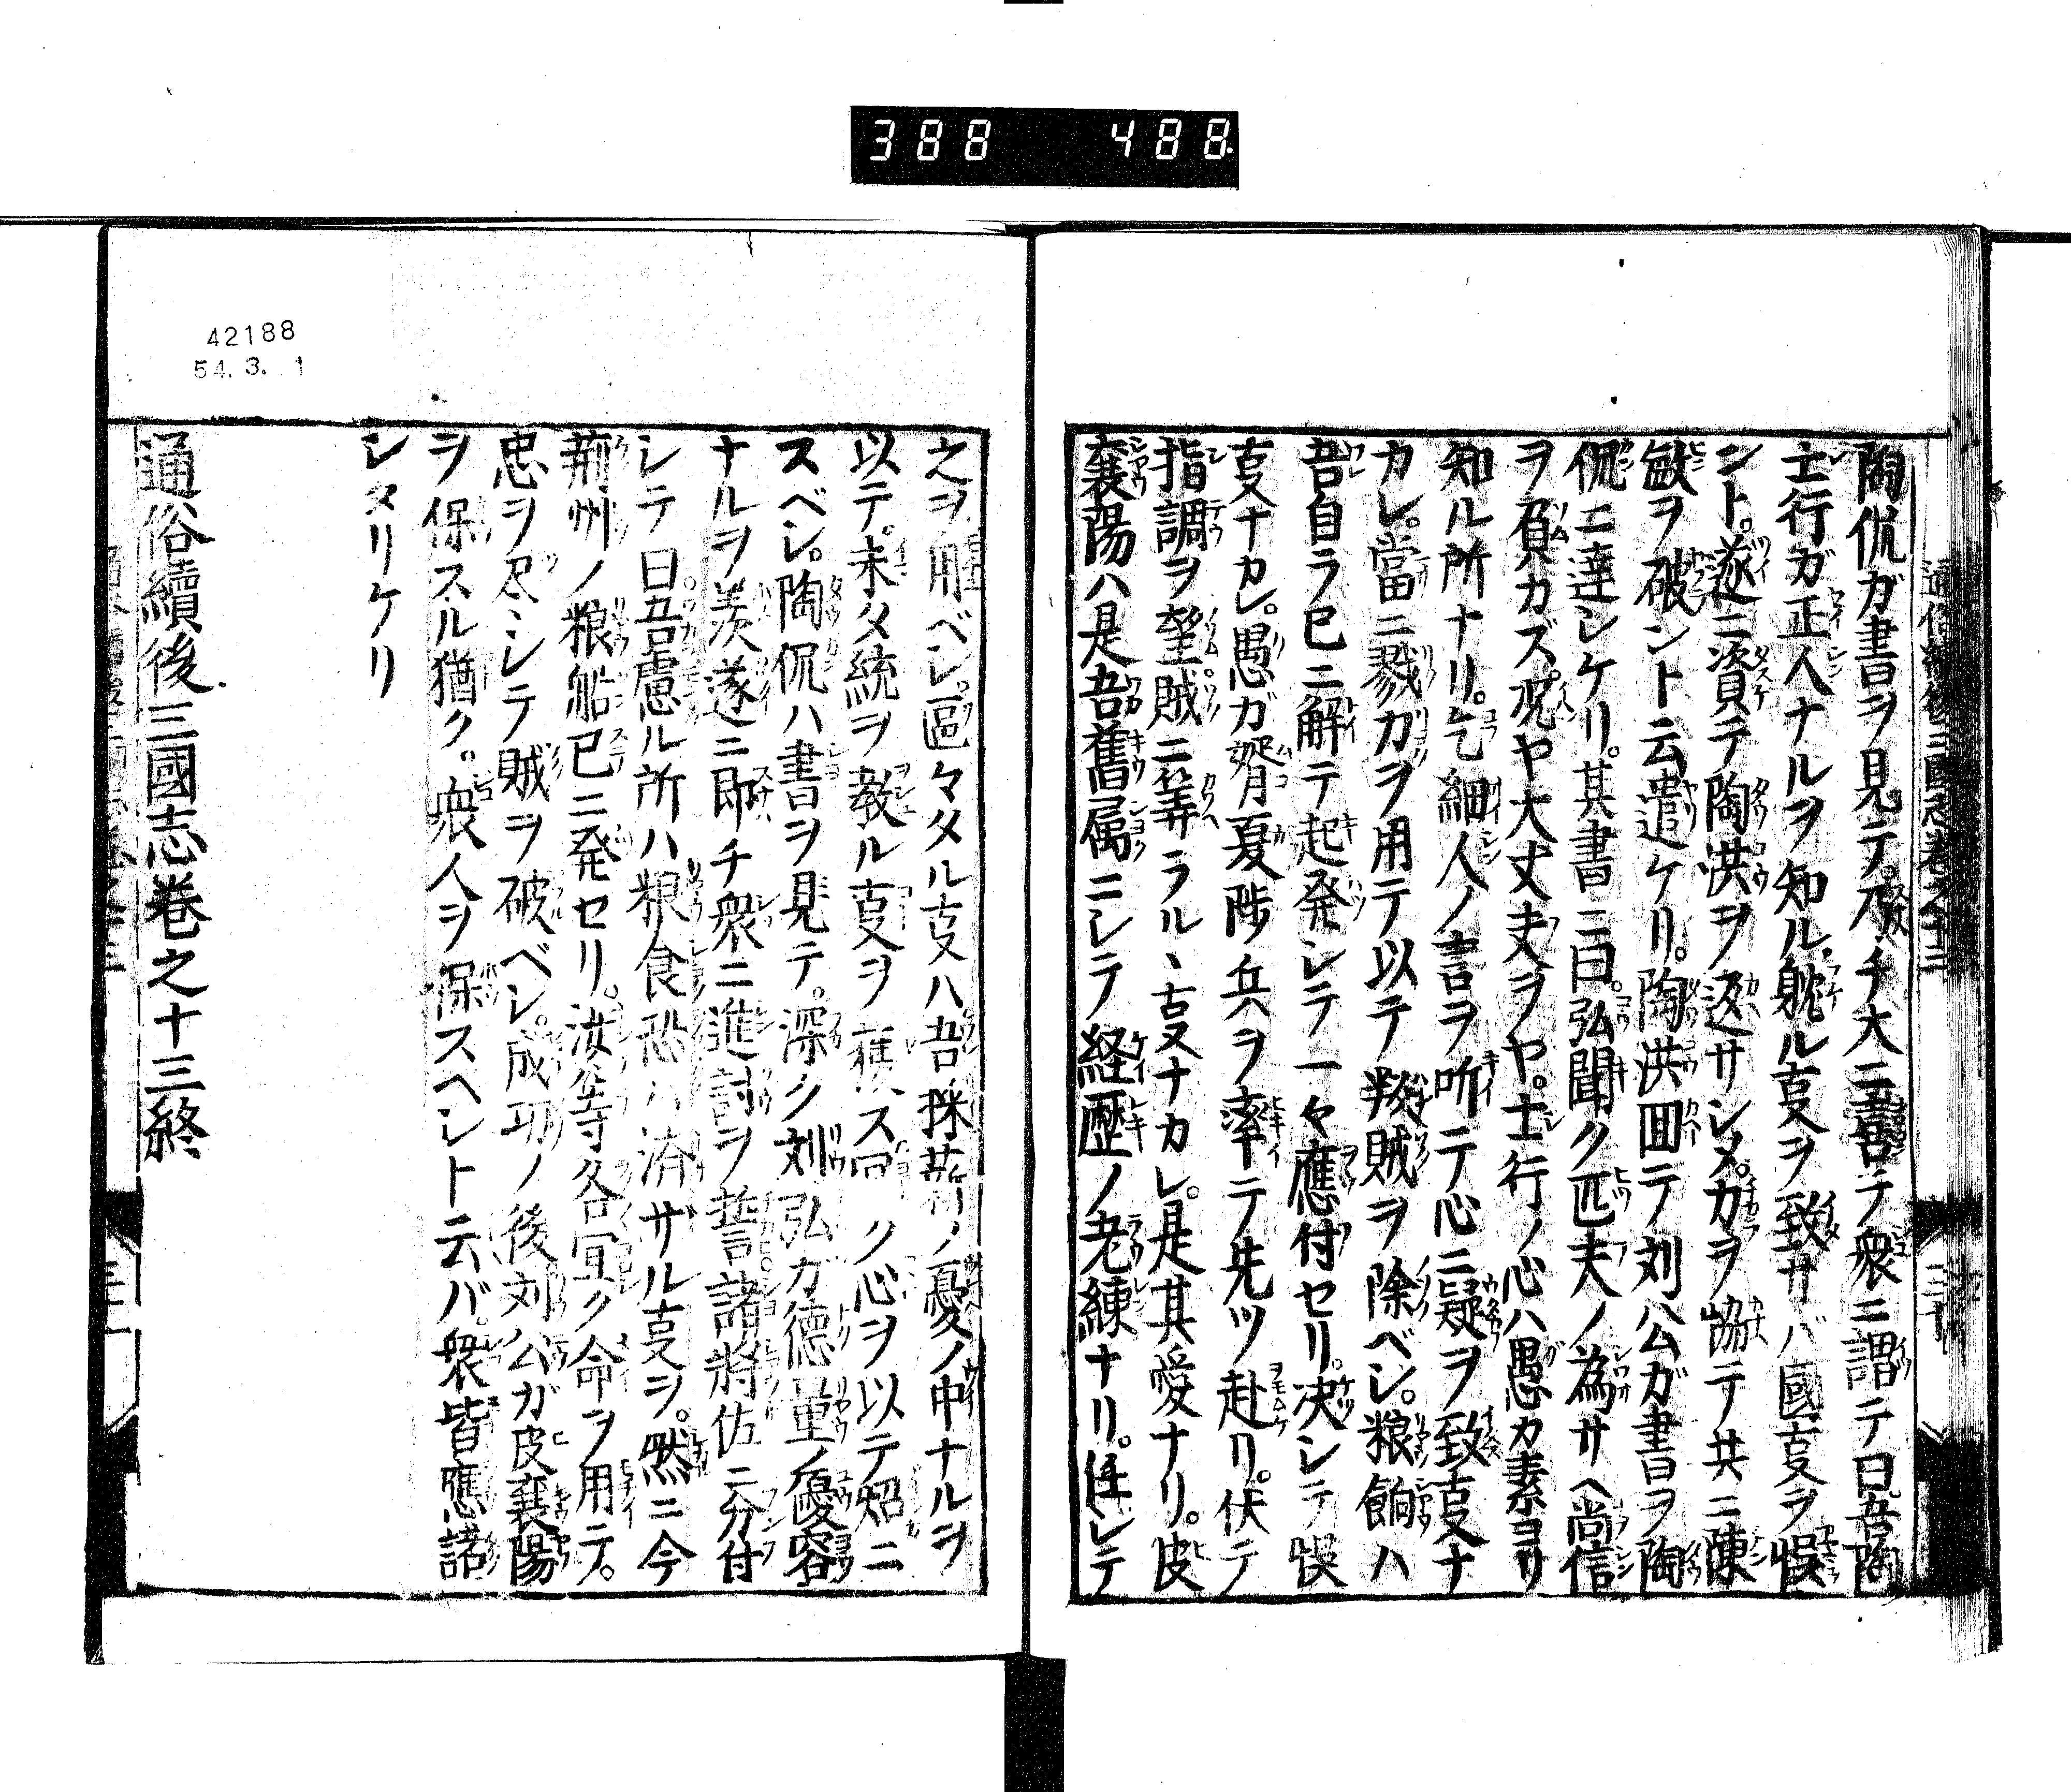 388 488
陶侃ガ書ヲ見テ。乃チ大ニ喜テ衆ニ謂テ曰。吾陶
士行ガ正人ナルヲ知ル。躭ル㕝ヲ致サバ國㕝ヲ悞
ント。遂ニ資テ陶洪ヲ返サシメ。力ヲ協テ共ニ陳
敏ヲ破ント云遣ケリ。陶洪囬テ刘公ガ書ヲ陶
侃ニ達シケリ。其書ニ曰。弘聞ク匹夫ノ為サヘ尚信
ヲ負カズ。况ヤ大丈夫ヲヤ。士行ノ心ハ愚カ素ヨリ
知ル所ナリ。乞細人ノ言ヲ听テ心ニ疑ヲ致㕝ナ
カレ。當ニ戮力ヲ用テ以テ叛賊ヲ除ベシ。粮餉ハ
吾自ラ已ニ解テ起発シテ一々應付セリ。决シテ悞
㕝ナカレ。愚ガ壻夏陟兵ヲ率テ先ツ赴リ。伏テ
指調ヲ望。賊ニ筭ラルヽ㕝ナカレ。是其愛ナリ。皮
襄陽ハ是吾舊属ニシテ経歴ノ老練ナリ。任シテ
之ヲ用ベシ。區々タル㕝ハ吾採薪ノ憂ノ中ナルヲ
以テ。未タ統ヲ教ル㕝ヲ ス ク心ヲ以テ炤ニ
スベシ。陶侃ハ書ヲ見テ。深ク刘弘ガ德量ノ優容
ナルヲ羨遂ニ即チ衆ニ進討ヲ誓。諸將佐ニ分付
シテ曰。吾慮ル所ハ粮食恐ハ済ザル㕝ヲ。然ニ今
荊州ノ粮船已ニ発セリ。汝等各宜ク命ヲ用テ。
忠ヲ尽シテ賊ヲ破ベシ。成功ノ後刘公ガ皮襄陽
ヲ保スル猶ク。衆人ヲ保スヘシト云バ。衆皆應諾
シタリケリ
通俗續後三國志巻之十三終
42188
54. 3. 1